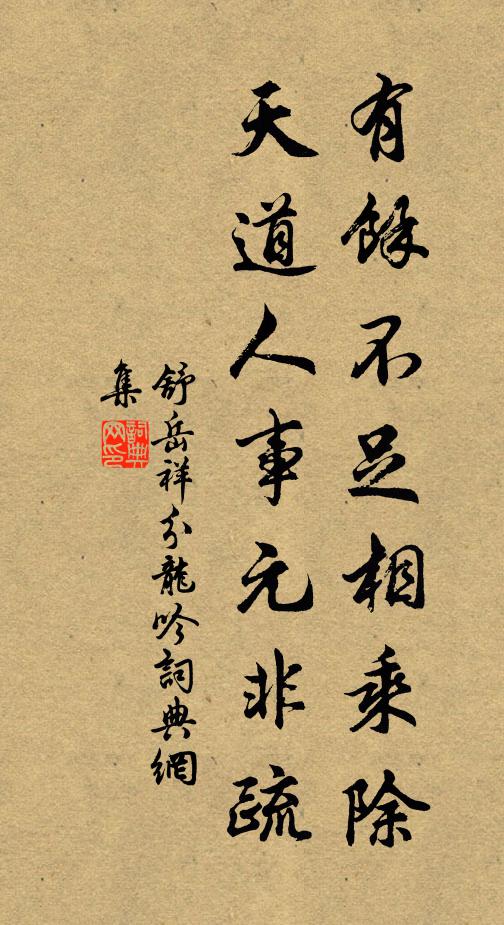 有餘不足相乘除
天道人事元非疏
舒岳祥分龍吟詞典網
集
詞典
网印